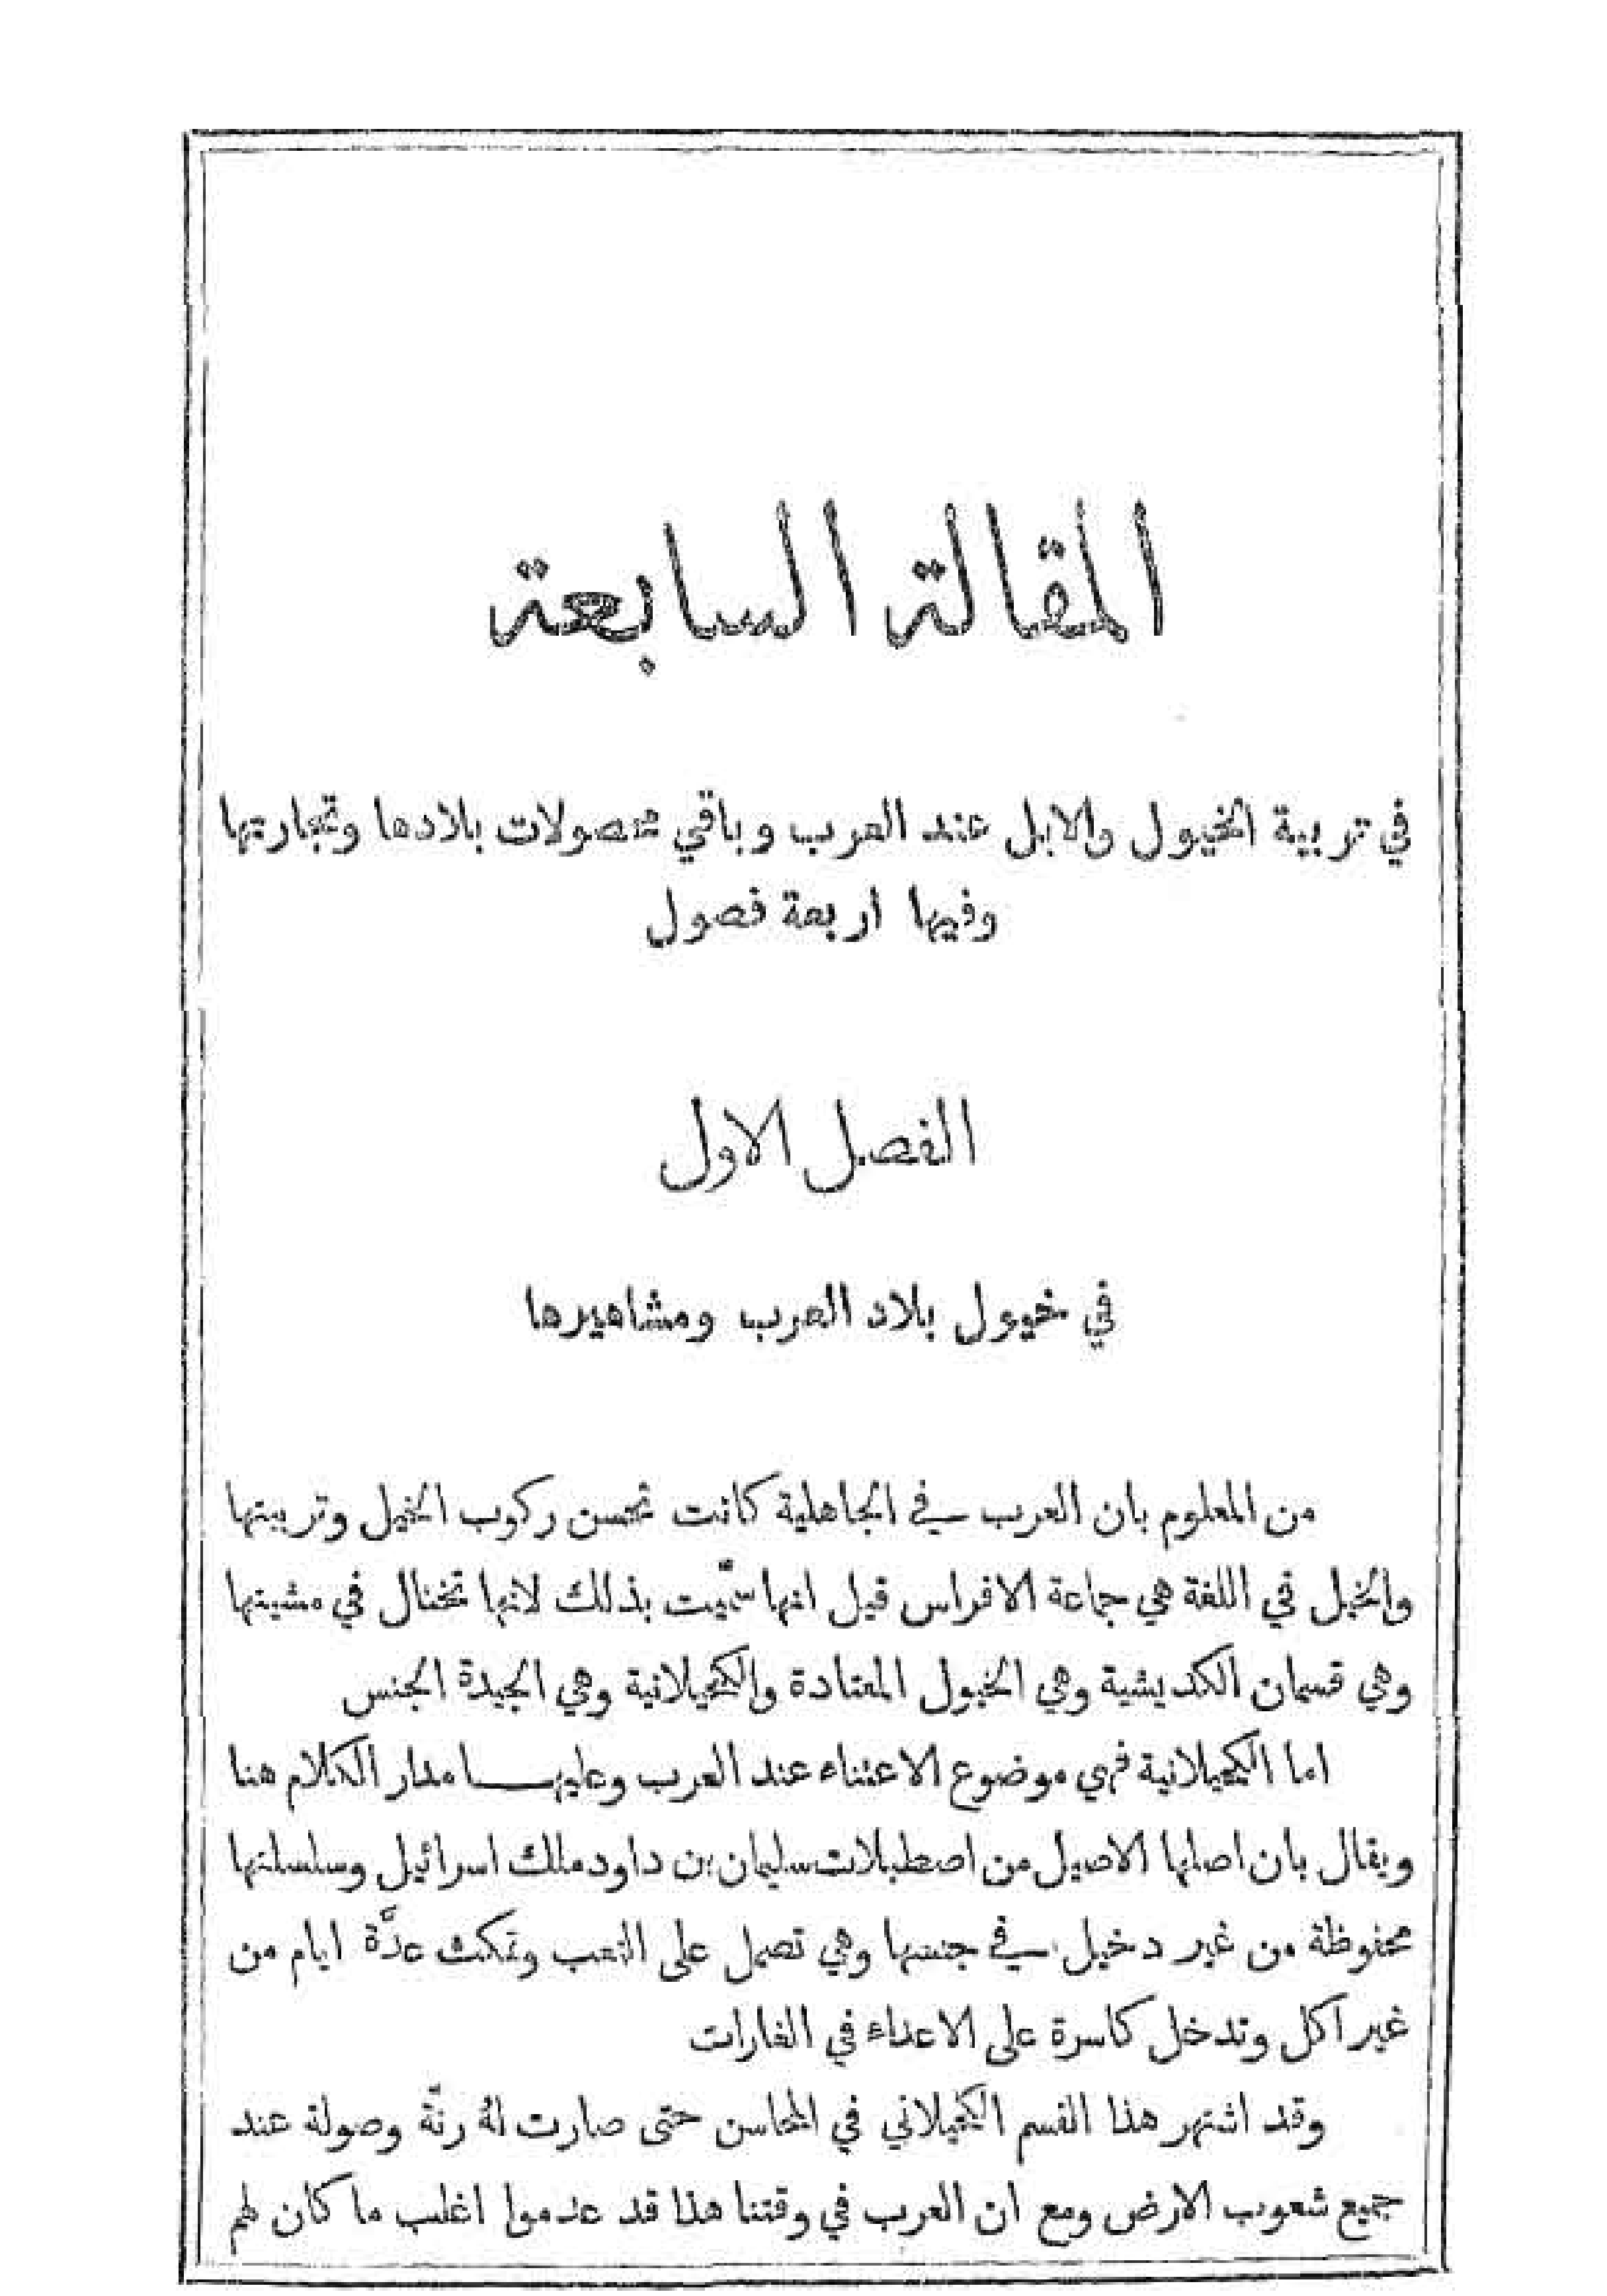 المقالة السابعة
في تربية الخيول والابل عند العرب وباقي محصولات بلادها وتجارتها
وفيها اربعة فصول
الفصل الاول
في خيول بلاد العرب ومشاهيرها
من المعلوم بان العرب في الجاهلية كانت تحسن ركوب الخيل وتربيتها
والخيل في اللغة هي جماعة الافراس قيل انها سمّيت بذلك لانها تختال في مشيتها
وهي قسمان الكديشية وهي الخيول المعتادة والكحيلانية وهي الجيدة الجنس
اما الكحيلانية فهي موضوع الاعتناء عند العرب وعليها مدار الكلام هنا
ويقال بان اصلها الاصيل من اصطبلات سليمان بن داود ملك اسرائيل وسلسلتها
محفوظة من غير دخيل في جنسها وهي تصمل على التعب وتمكث عدَّة ايام من
غير اكل وتدخل كاسرة على الاعداء في الغارات
وقد اشتهر هذا القسم الكحيلاني في المحاسن حتى صارت لهُ رنَّة وصولة عند
جميع شعوب الارض ومع ان العرب في وقتنا هذا قد عدموا اغلب ما كان لهم